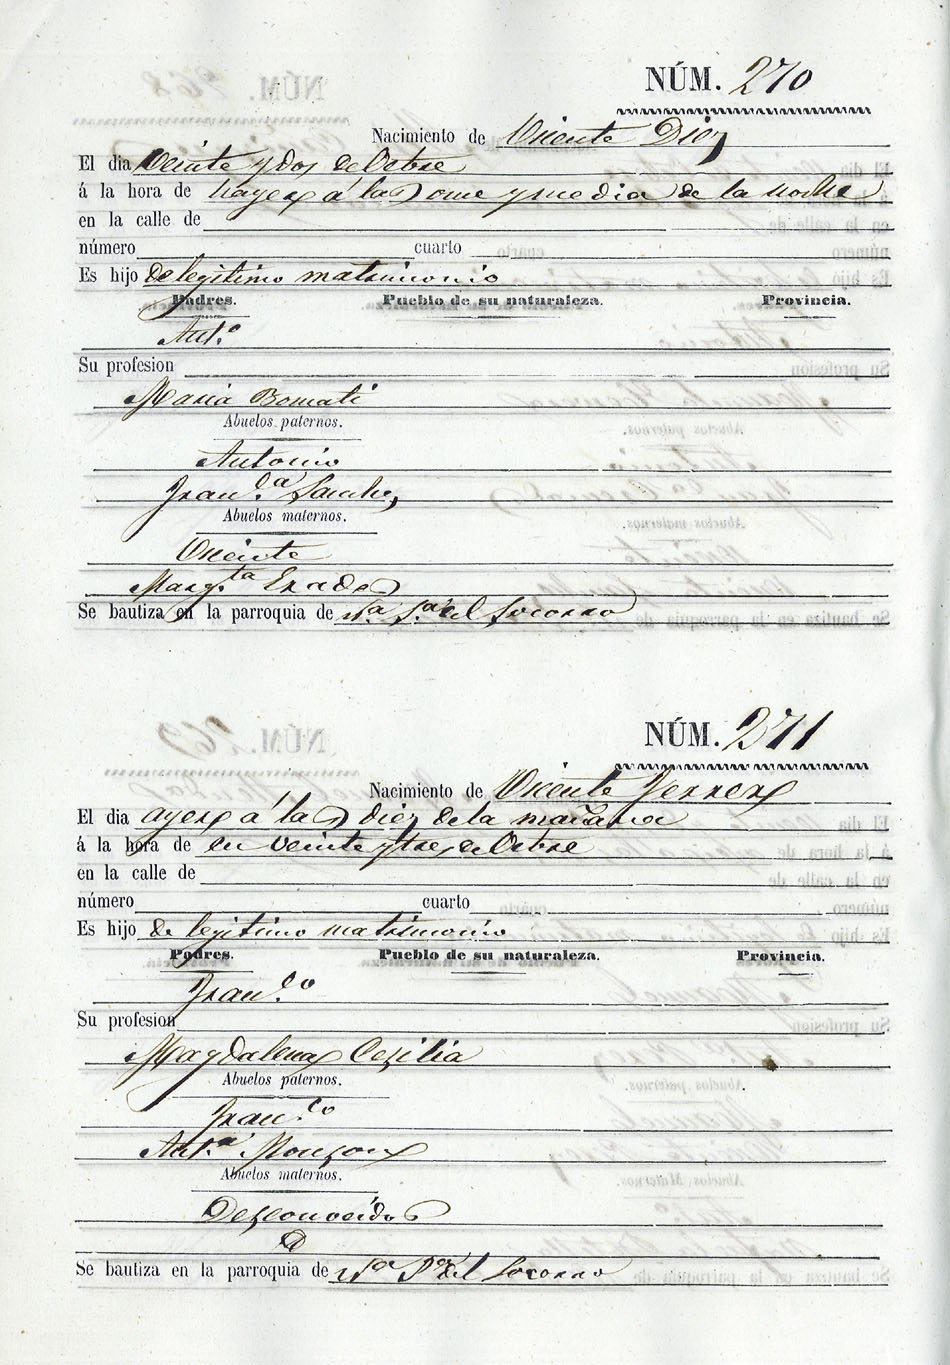 NÚM. 270
Nacimiento de Vicente Diez
El dia Veinte y dos de Octbre
á la hora de hayer á las onse y media de la noche
en la calle de
número cuarto
Es hijo de legitimo matrimonio
Padres. Pueblo de su naturaleza. Provincia.
Ant.º
Su profesion
Maria Bomati
Abuelos paternos.
Antonio
Fran.ca Sanchez
Abuelos maternos.
Vicente
Marg.ta Erades
Se bautiza en la parroquia de Nª. Sª. del Socorro
NÚM. 271
Nacimiento de Vicente Ferrer
El dia ayer á las diez de la mañana
á la hora de en veinte y tres de Octbre
en la calle de
número cuarto
Es hijo de legitimo matrimonio
Padres. Pueblo de su naturaleza. Provincia.
Fran.co
Su profesion
Magdalena Cesilia
Abuelos paternos.
Fran.co
Ant.ª Monzon
Abuelos maternos.
Desconocidos
Se bautiza en la parroquia de Nª Sª del Socorro